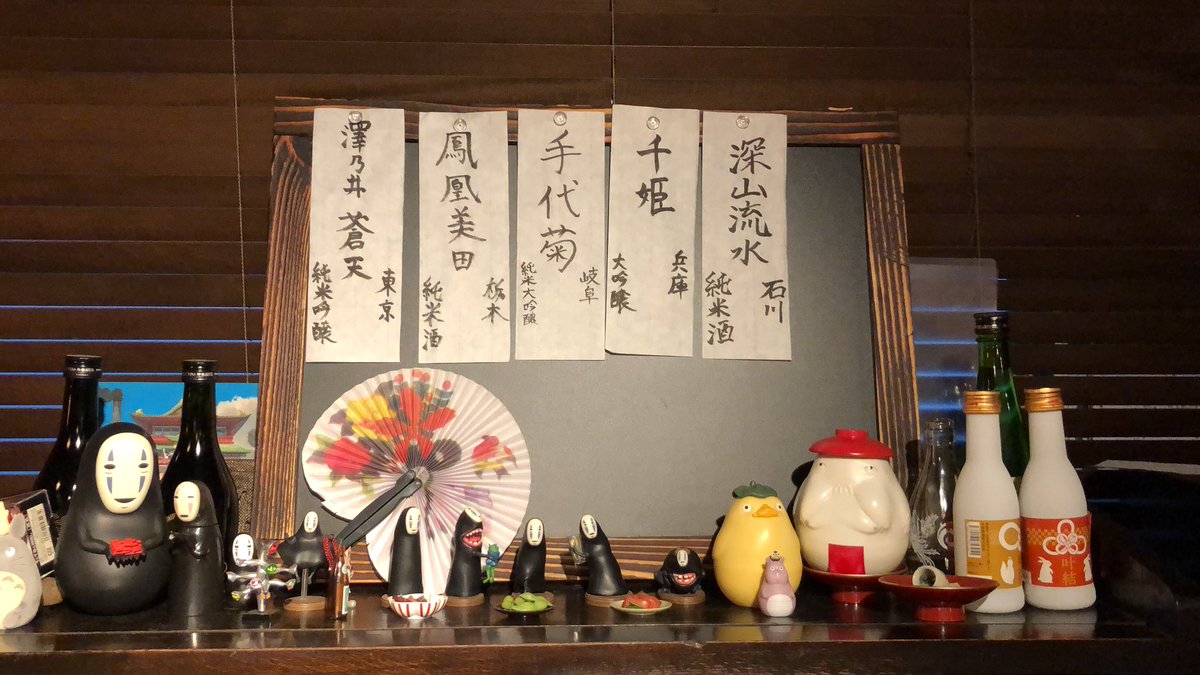 深山流水
石川
純米酒
千姫
兵庫
大吟醸
手代菊
岐阜
純米大吟醸
鳳凰美田
栃木
純米酒
澤乃井 蒼天
東京
純米吟醸
叶結